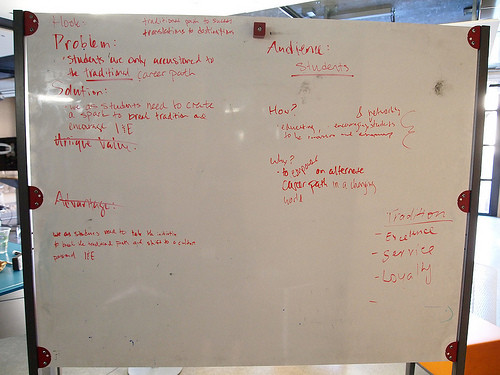 Hook:
traditional path to success
translations to destination
Problem:
· Students are only accustomed to
the traditional career path
Solution:
· we as students need to create
a spark to break tradition and
encourage I&E
Unique Value:
Advantage:
we as students need to take the initiative
to break the traditional path and shift to a culture
I&E
Audience:
Students
How?
& networking
educating, encouraging students
to be
Why?
· to on alternate
career path in a changing
world
Tradition
- Excellence
- Service
- Loyalty
-